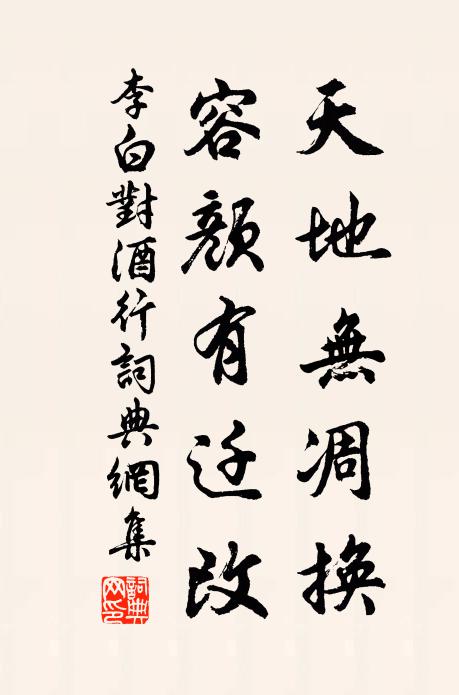 天地無凋換
容顏有迁改
李白對酒行詞典網集
詞典
网印